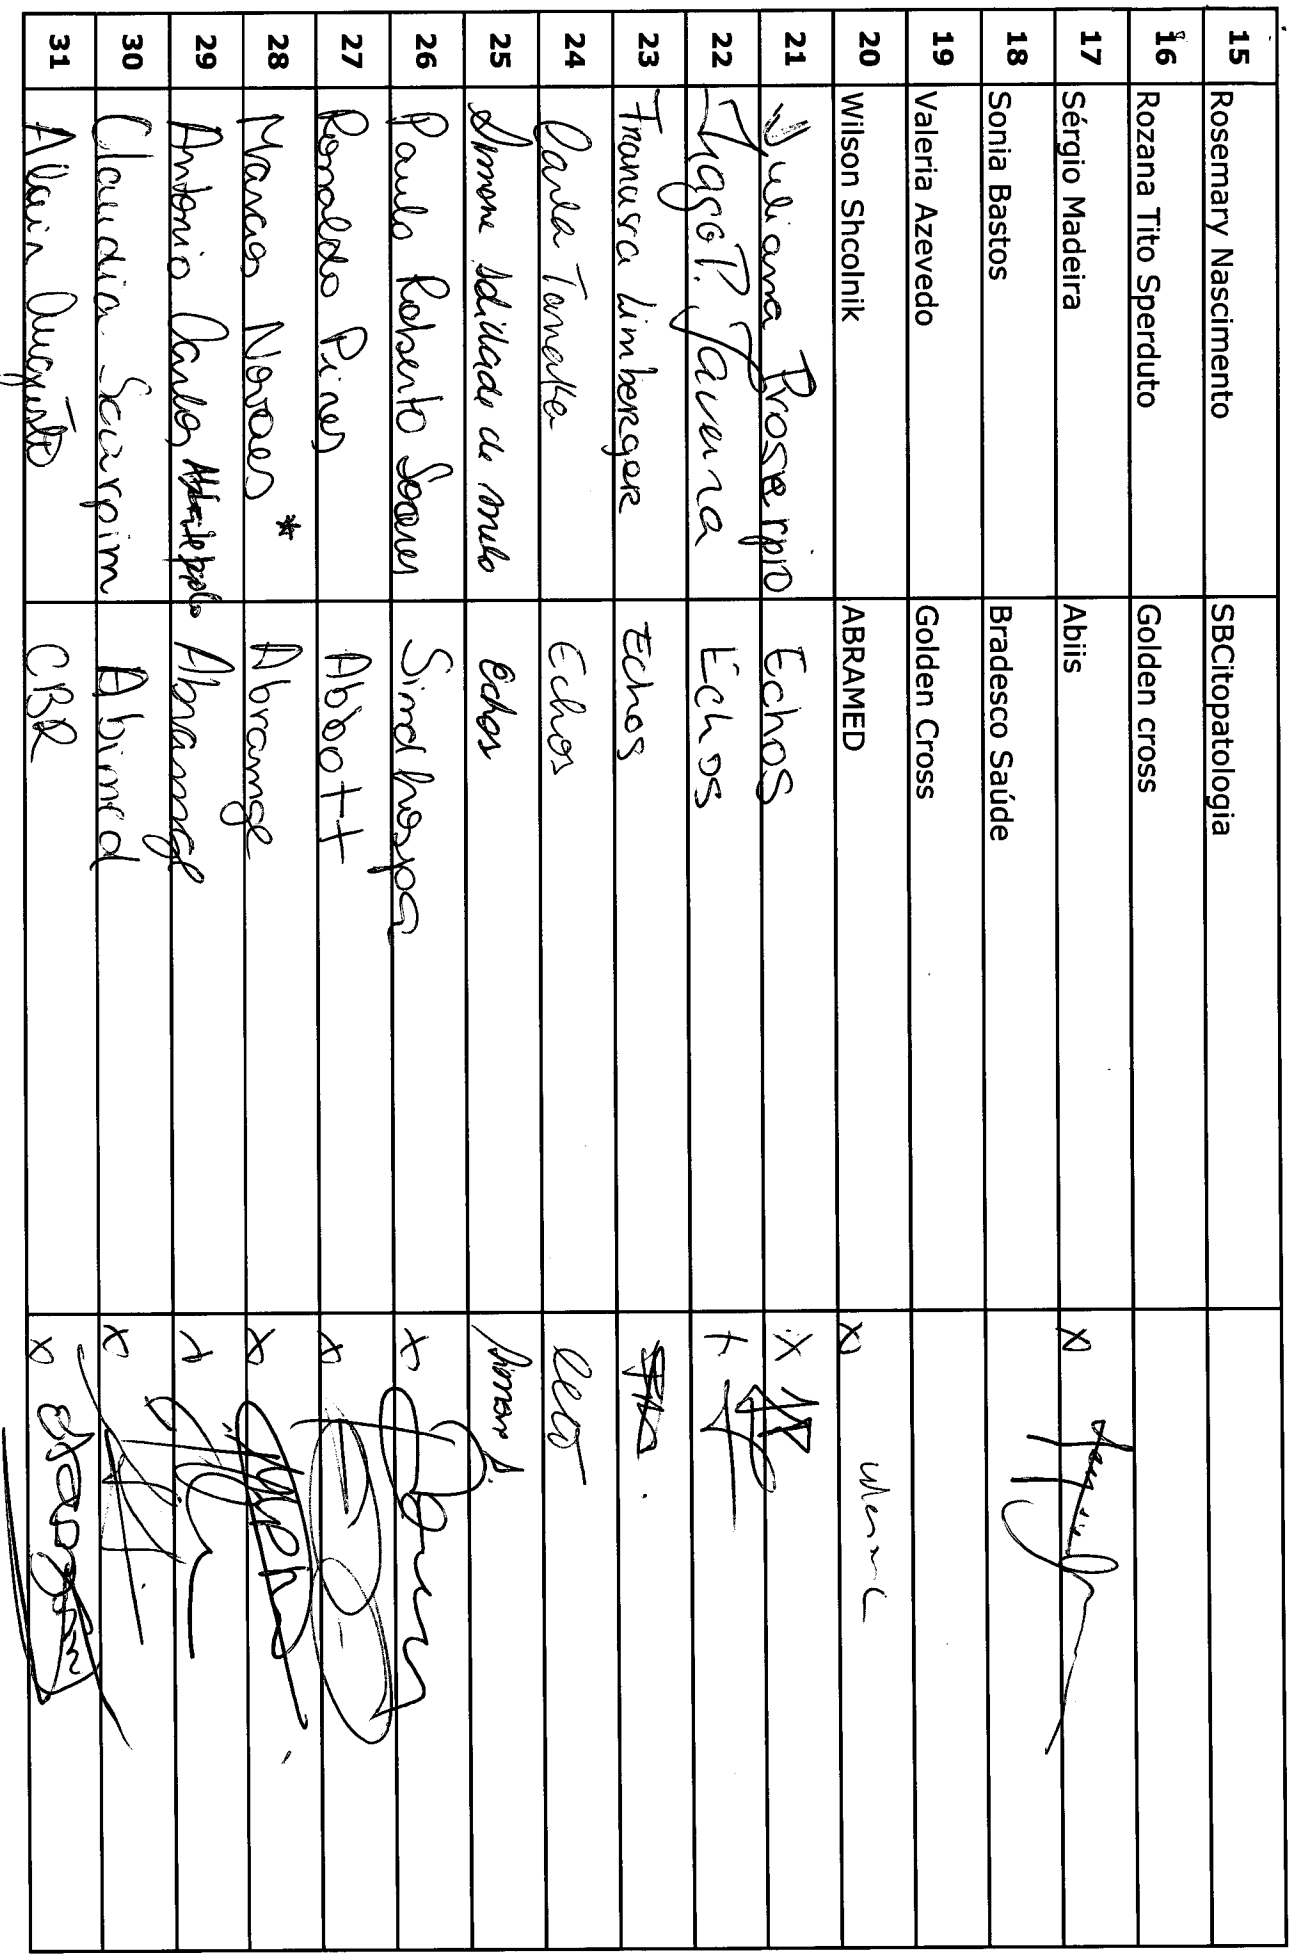 15 Rosemary Nascimento SBCitopatologia
16 Rozana Tito Sperduto Golden cross
17 Sérgio Madeira Abiis X
18 Sonia Bastos Bradesco Saúde
19 Valeria Azevedo Golden Cross
20 Wilson Shcolnik ABRAMED X
21 Juliana Proserpio Echos X
22 Thiago P. Taverna Echos
23 Francisca Limberger Echos
24 Carla Echos
25 Simone de Melo Echos Simone
26 Paulo Roberto Soares Sindhospa X
27 Ronaldo Pires Abbott X
28 Marcos Novaes * Abramge X
29 Antonio Carlos Abramge
30 Claudia Scarpim Abimed X
31 Alair Augusto CBR X